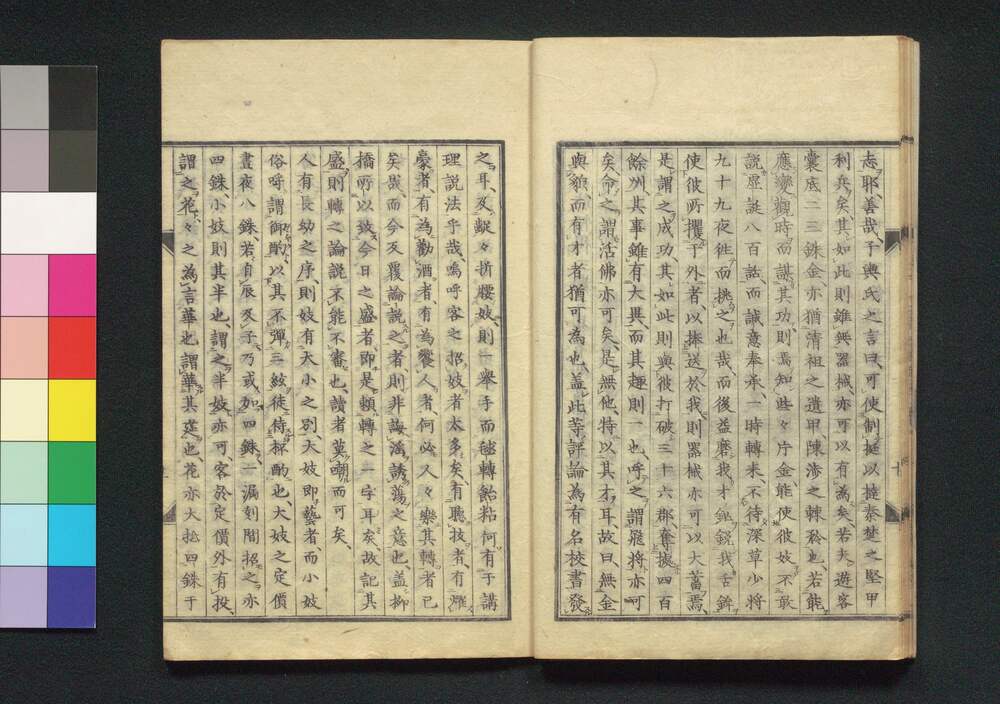 志耶善哉子輿氏之言曰可使制挺以撻秦楚之堅甲
利兵矣其如此則雖無器械亦可以有為矣若夫遊客
囊底二三銖金亦猶清祖之遺甲陳渉之棘矜也若能
應變觀時而謀其功則焉知些々片金能使彼妓不敢
説虚誕八百話而誠意奉承一時轉来不待深草少將
九十九夜徃而挑之也哉而後益磨我才鋭我舌鋒
使彼所攫于外者以捧送於我則器械亦可以大蓄焉
是謂之成功其如此則與彼打破三十六郡奪掠四百
餘州其事雖有大異而其趣則一也呼之謂猩將亦可
矣命之謂活佛亦可矣是無他特以其才耳故曰無金
與貌而有才者猶可為也蓋此等評論為有名校書發
之耳及齪々折腰妓則一舉手而毬轉飴粘何有于講
理説法乎哉嗚呼客之招妓者太多矣有聽技者有燿
豪者有為勸酒者有為饗人者何必人々樂其轉者已
矣哉而今反覆論説之者則非誨淫誘蕩之意也蓋柳
橋所以致今日之盛者即是頼轉之一字耳矣故記其
盛則轉之論説不能不審也讀者莫嘲而可矣
人有長幼之序則妓有大小之別大妓即藝者而小妓
俗呼謂御酌以其不彈三絃徒侍杯酌也大妓之定價
晝夜八銖若自辰及子乃或如四銖一漏刻間招之亦
四銖小妓則其半也謂之半妓亦可客於定價外有投
謂之花々之為言華也謂華其筵也花亦大抵四銖于